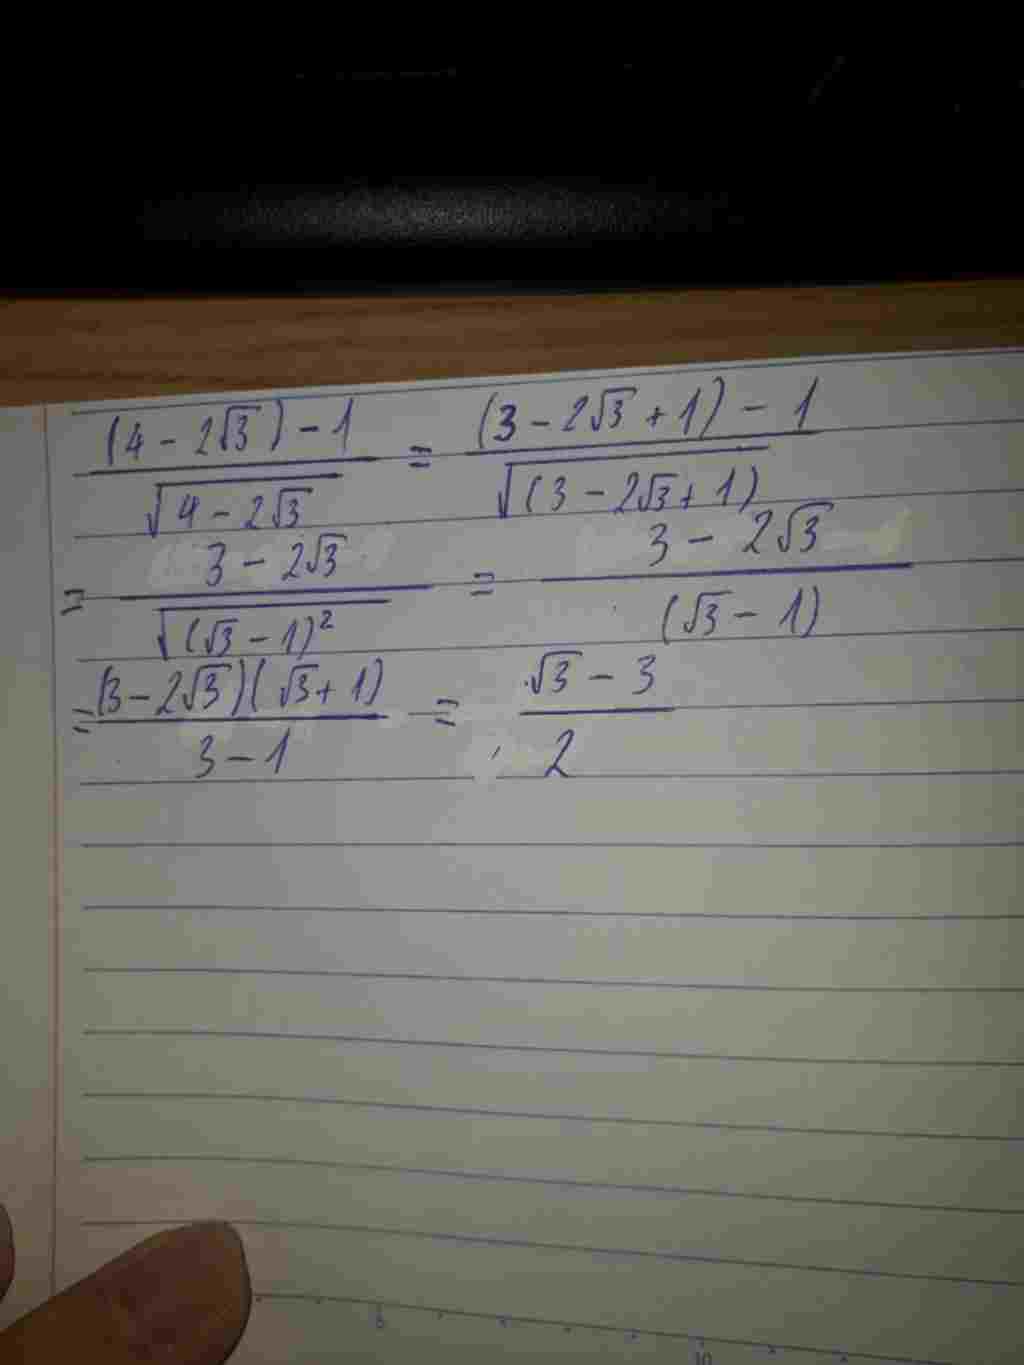 ((4 - 2√3) - 1) / √(4 - 2√3) = ((3 - 2√3 + 1) - 1) / √((3 - 2√3 + 1))
= (3 - 2√3) / √((√3 - 1)²) = (3 - 2√3) / (√3 - 1)
= (3 - 2√3)(√3 + 1) / (3 - 1) = (√3 - 3) / 2
8
10